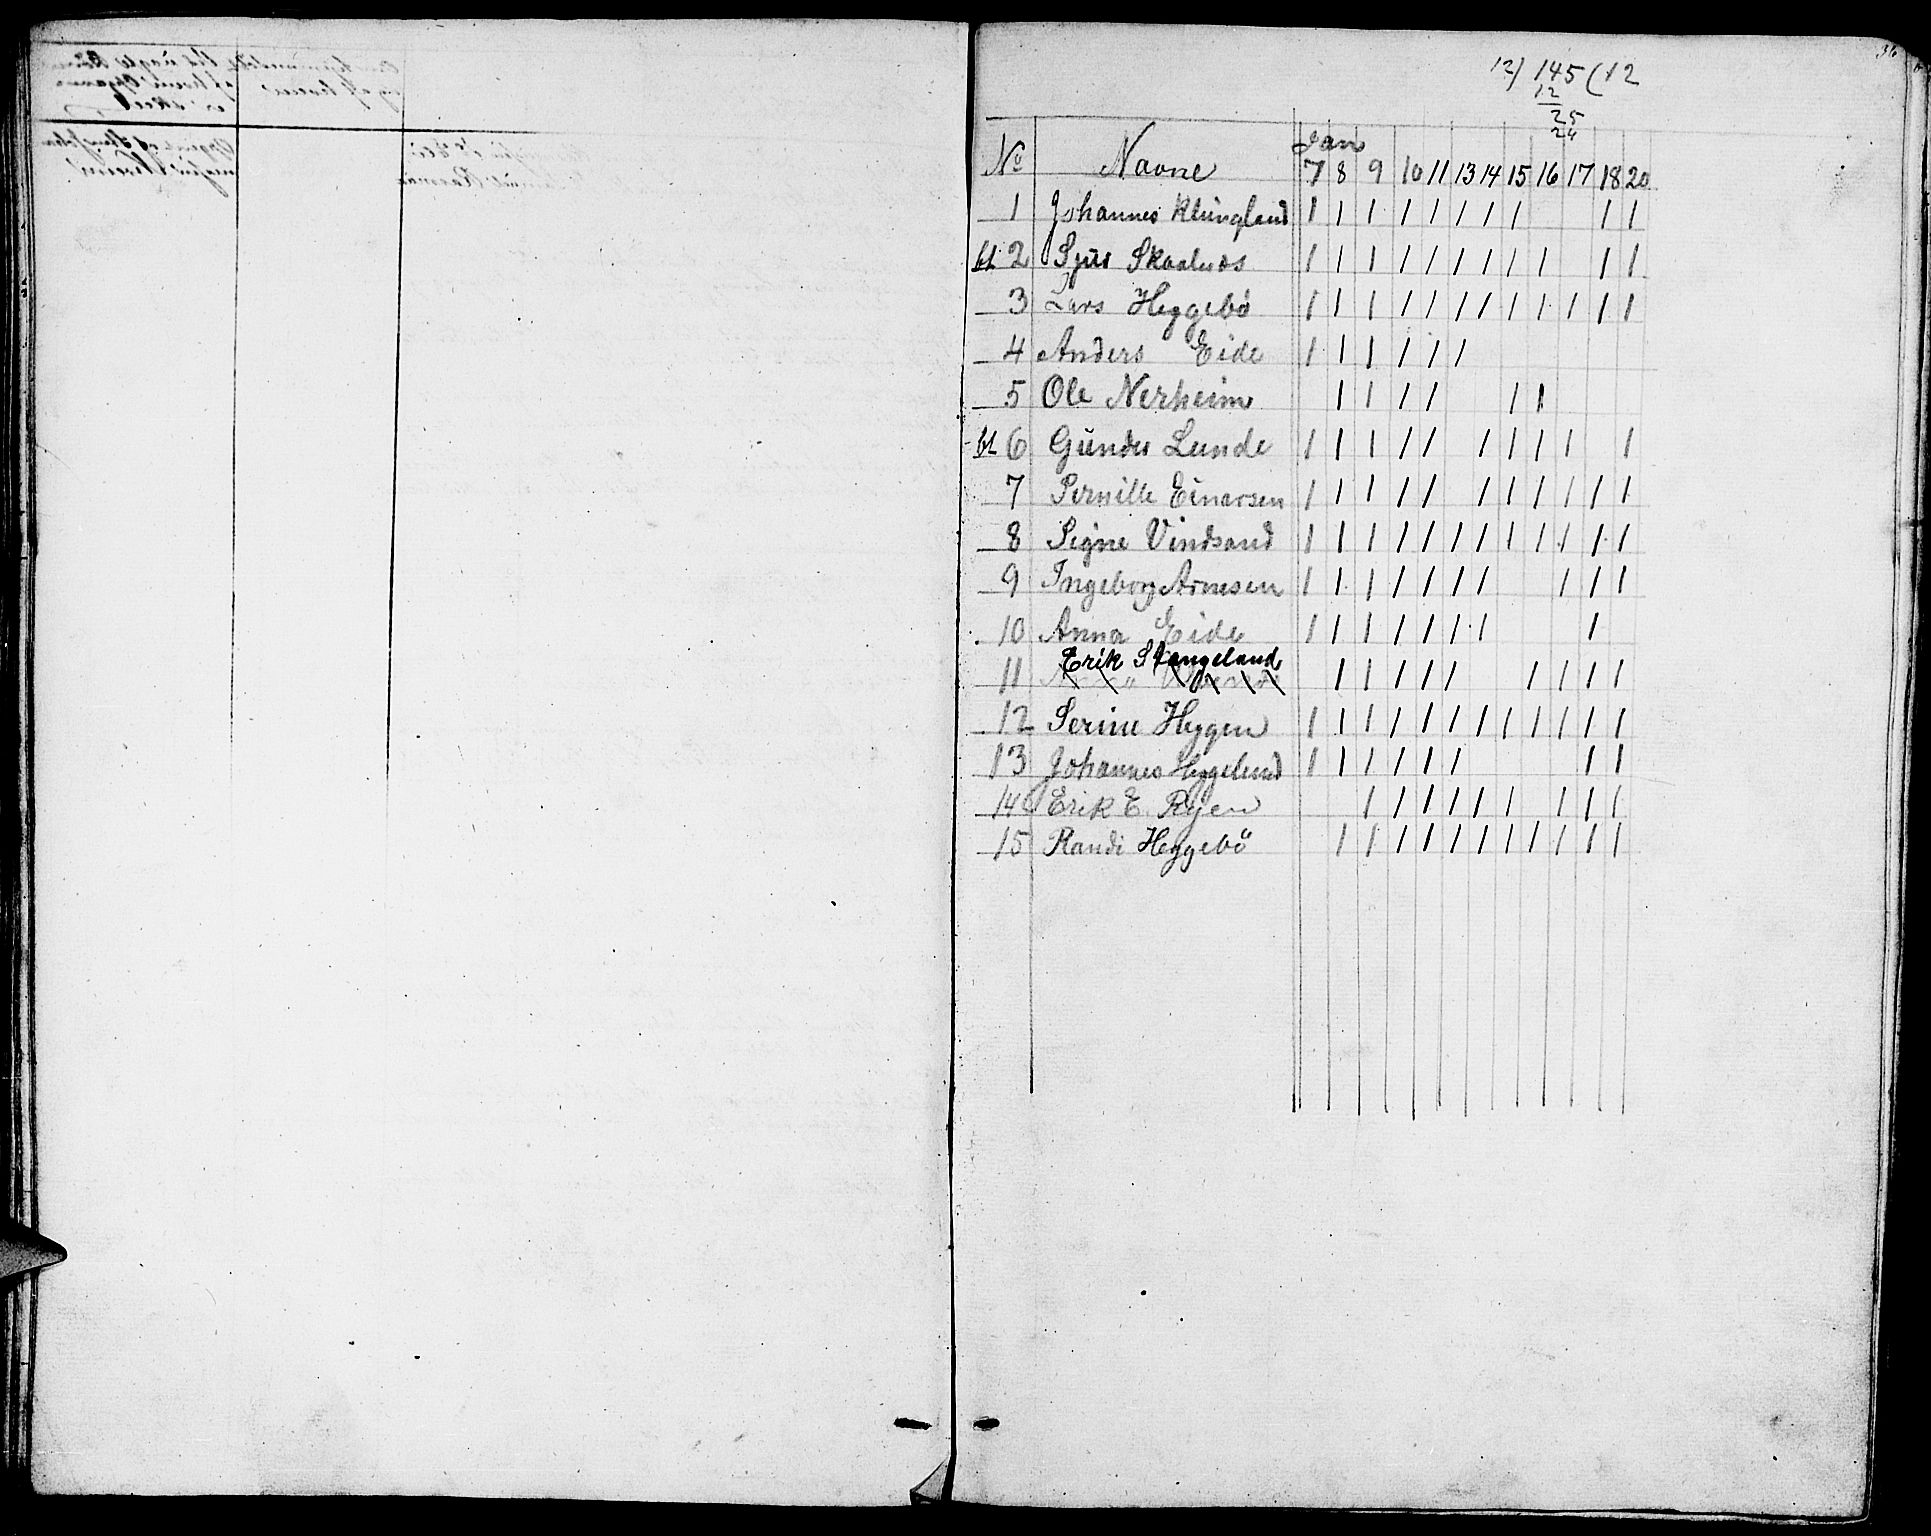 36
12) 145 (12
12
25
24
Jan
No Navne 7 8 9 10 11 13 14 15 16 17 18 20
1 Johannes Klungland 1 1 1 1 1 1 1 1 1 1
bl 2 Sjur Skaalnes 1 1 1 1 1 1 1 1 1 1 1
3 Lars Heggebö 1 1 1 1 1 1 1 1 1 1 1 1
4 Anders Eide 1 1 1 1 1 1
5 Ole Nerheim 1 1 1 1 1 1
bl 6 Gunder Lunde 1 1 1 1 1 1 1 1 1 1
7 Pernille Einarsen 1 1 1 1 1 1 1 1 1 1 1
8 Signe Vindsand 1 1 1 1 1 1 1 1 1 1 1 1
9 Ingeborg Arnesen 1 1 1 1 1 1 1 1 1 1
10 Anna Eide 1 1 1 1 1 1 1 1
Erik Stangeland
11 1 1 1 1 1 1 1 1 1
12 Serine Heggen 1 1 1 1 1 1 1 1 1 1 1 1
13 Johannes Heggelund 1 1 1 1 1 1 1 1
14 Erik E. Ryen 1 1 1 1 1 1 1 1 1
15 Randi Heggebö 1 1 1 1 1 1 1 1 1 1 1